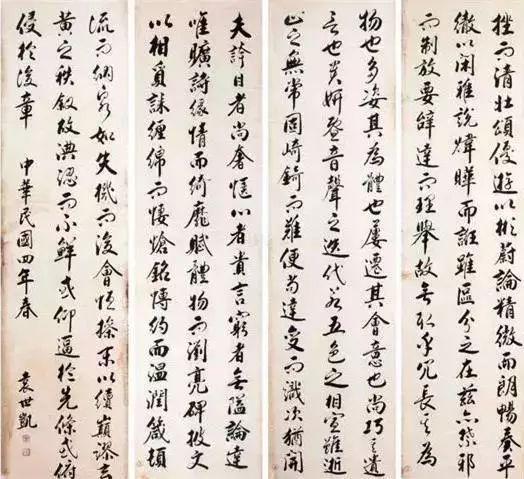 挫而清壯頌優遊以彬蔚論精微而朗暢奏平
徹以閑雅說煒曄而誑雖區分之在茲亦禁邪
而制放要辭達而理舉故無取乎冗長其為
物也多姿其為體也屢遷其會意也尚巧其遣
言也貴妍暨音聲之迭代若五色之相宣雖逝
止之無常固崎錡而難便苟達變而識次猶開
夫誇目者尚奢愜心者貴言窮者無隘論達
唯曠詩緣情而綺靡賦體物而瀏亮碑披文
以相質誄纏綿而悽愴銘博約而溫潤箴頓
流而納泉如失機而後會恆操末以續顛謬玄
黃之秩敘故淟涊而不鮮或仰逼於先條或俯
侵於後章 中華民國四年春
袁世凱